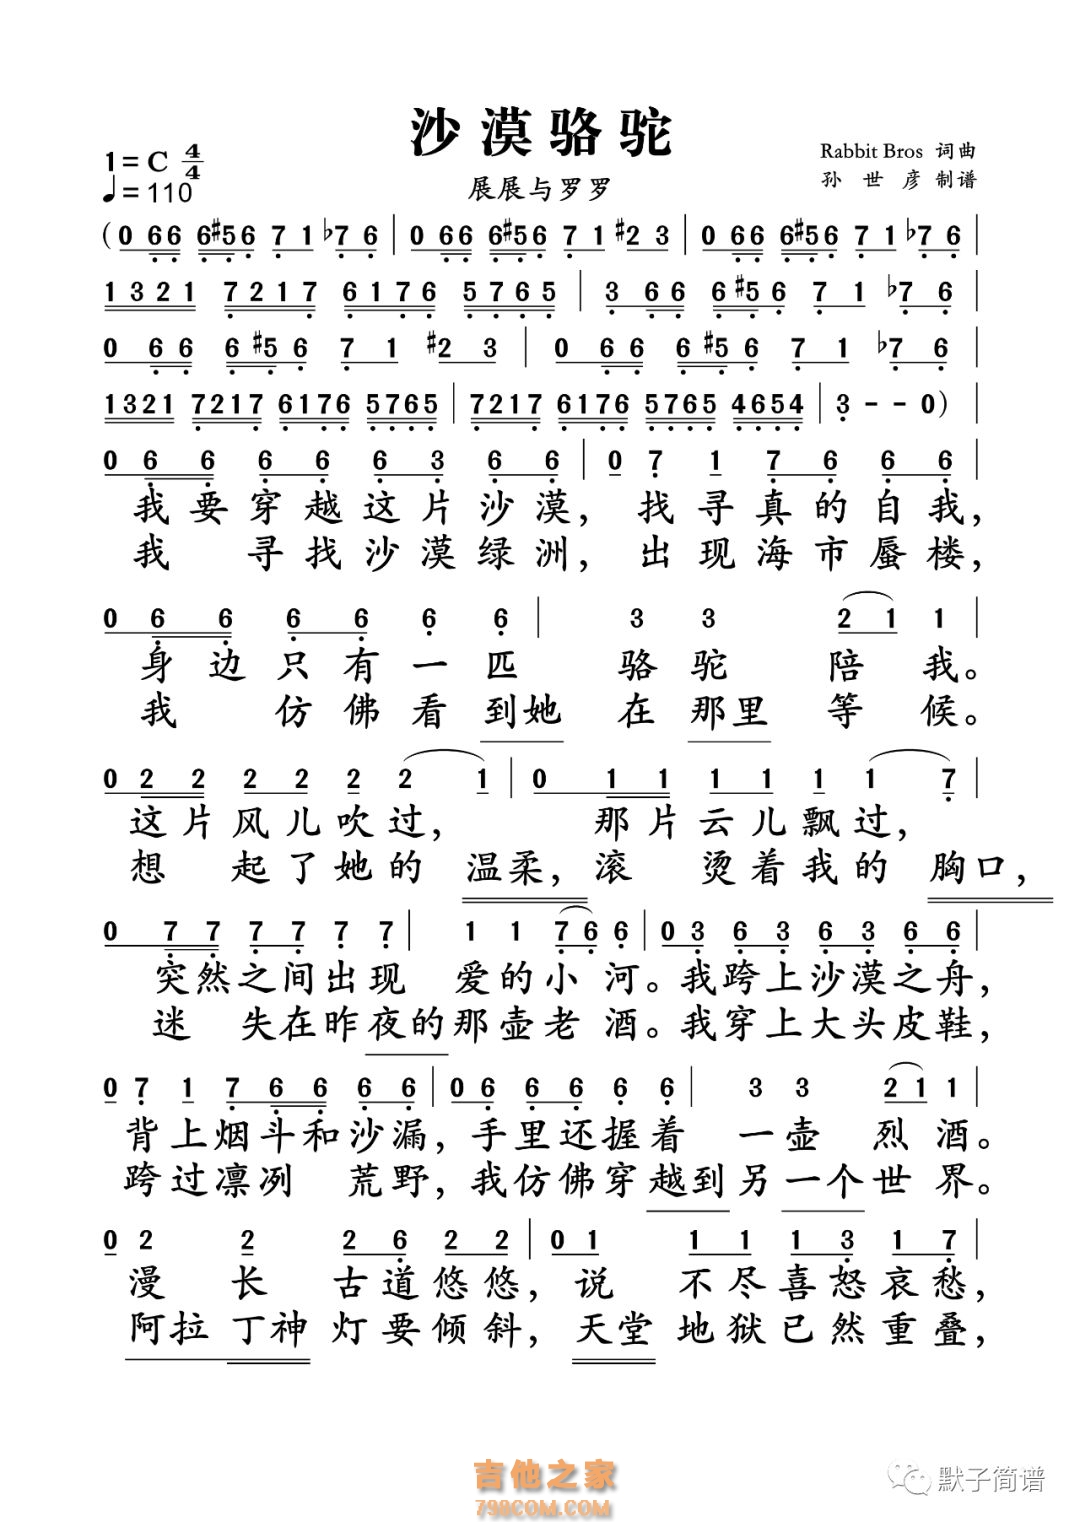 沙漠骆驼
1=C 4/4
♩=110
展展与罗罗
Rabbit Bros 词曲
孙世彦 制谱
(0 66 6#56 7 1 ♭7 6 | 0 66 6#56 7 1 #2 3 | 0 66 6#56 7 1 ♭7 6 |
1321 7217 6176 5765 | 3 66 6#56 7 1 ♭7 6 |
0 66 6#56 7 1 #2 3 | 0 66 6#56 7 1 ♭7 6 |
1321 7217 6176 5765 | 7217 6176 5765 4654 | 3 - - 0) |
0 6 6 6 6 6 3 6 6 | 0 7 1 7 6 6 6 |
我要穿越这片沙漠，找寻真的自我，
我 寻找沙漠绿洲，出现海市蜃楼，
0 6 6 6 6 6 6 | 3 3 2 1 1 |
身边只有一匹 骆驼 陪我。
我 仿佛看到她 在那里 等候。
0 2 2 2 2 2 2 1 | 0 1 1 1 1 1 1 7 |
这片风儿吹过， 那片云儿飘过，
想 起了她的 温柔，滚 烫着我的 胸口，
0 7 7 7 7 7 7 | 1 1 7 6 6 | 0 3 6 3 6 3 6 6 |
突然之间出现 爱的小河。我跨上沙漠之舟，
迷 失在昨夜的那壶老酒。我穿上大头皮鞋，
0 7 1 7 6 6 6 6 | 0 6 6 6 6 6 | 3 3 2 1 1 |
背上烟斗和沙漏，手里还握着 一壶 烈酒。
跨过凛冽 荒野，我仿佛穿越到另一个世界。
0 2 2 2 6 2 2 | 0 1 1 1 1 3 1 7 |
漫 长 古道悠悠，说 不尽喜怒哀愁，
阿拉丁神灯要倾斜，天堂地狱已然重叠，
吉他之家
798COM.COM
默子简谱